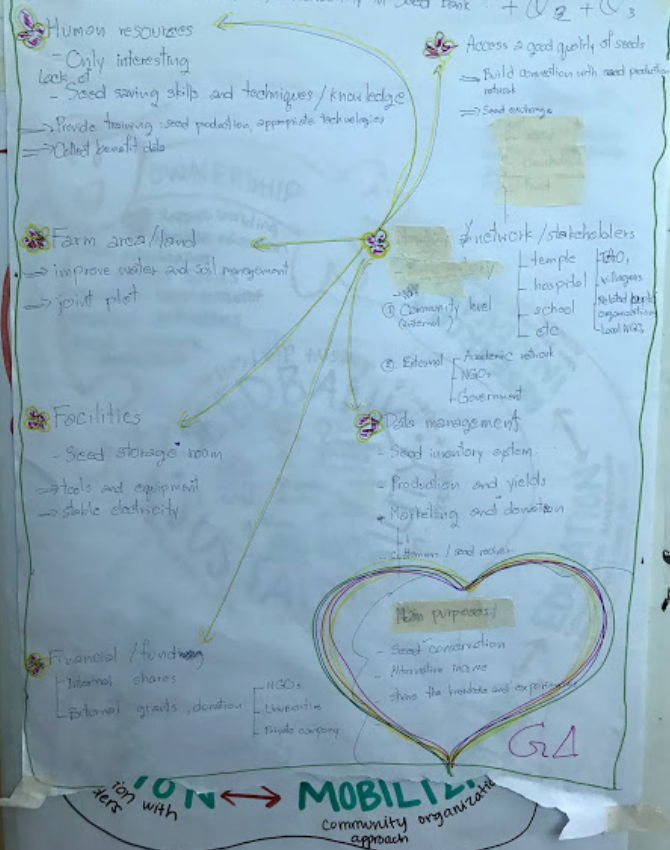 Seed Bank
Human resources
- Only interesting
Lack of
- Seed saving skills and techniques / knowledge
⇒ Provide training: seed production, appropriate technologies
⇒ Collect benefit data
Access a good quality of seeds
Build connection with seed production
network
⇒ Seed exchange
Farm area/land
⇒ improve water and soil management
⇒ joint plot
network / stakeholders
temple
hospital
school
etc
TAO,
villagers
Related
organization
Local NGOs
① Community level
② External
Academic network
NGOs
Government
Facilities
- Seed storage room
⇒ tools and equipment
⇒ stable electricity
Data management
- Seed inventory system
- Production and yields
- Marketing and donation
Customer / seed
Financial / funding
Internal shares
External grants, donation
NGOs
Universities
Private company
Main purposes/
- Seed conservation
- Alternative income
- Share the knowledge and experiences
G1
ION ↔ MOBILIZ
ion with
community organizatio
approach